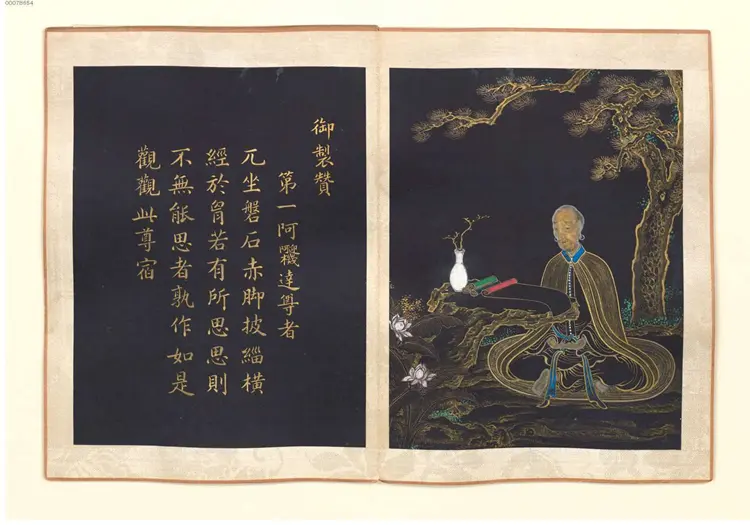 00078664
御製贊
第一阿㘕達尊者
兀坐磐石赤脚披緇橫
經於前若有所思思則
不無能思者孰作如是
觀觀此尊宿